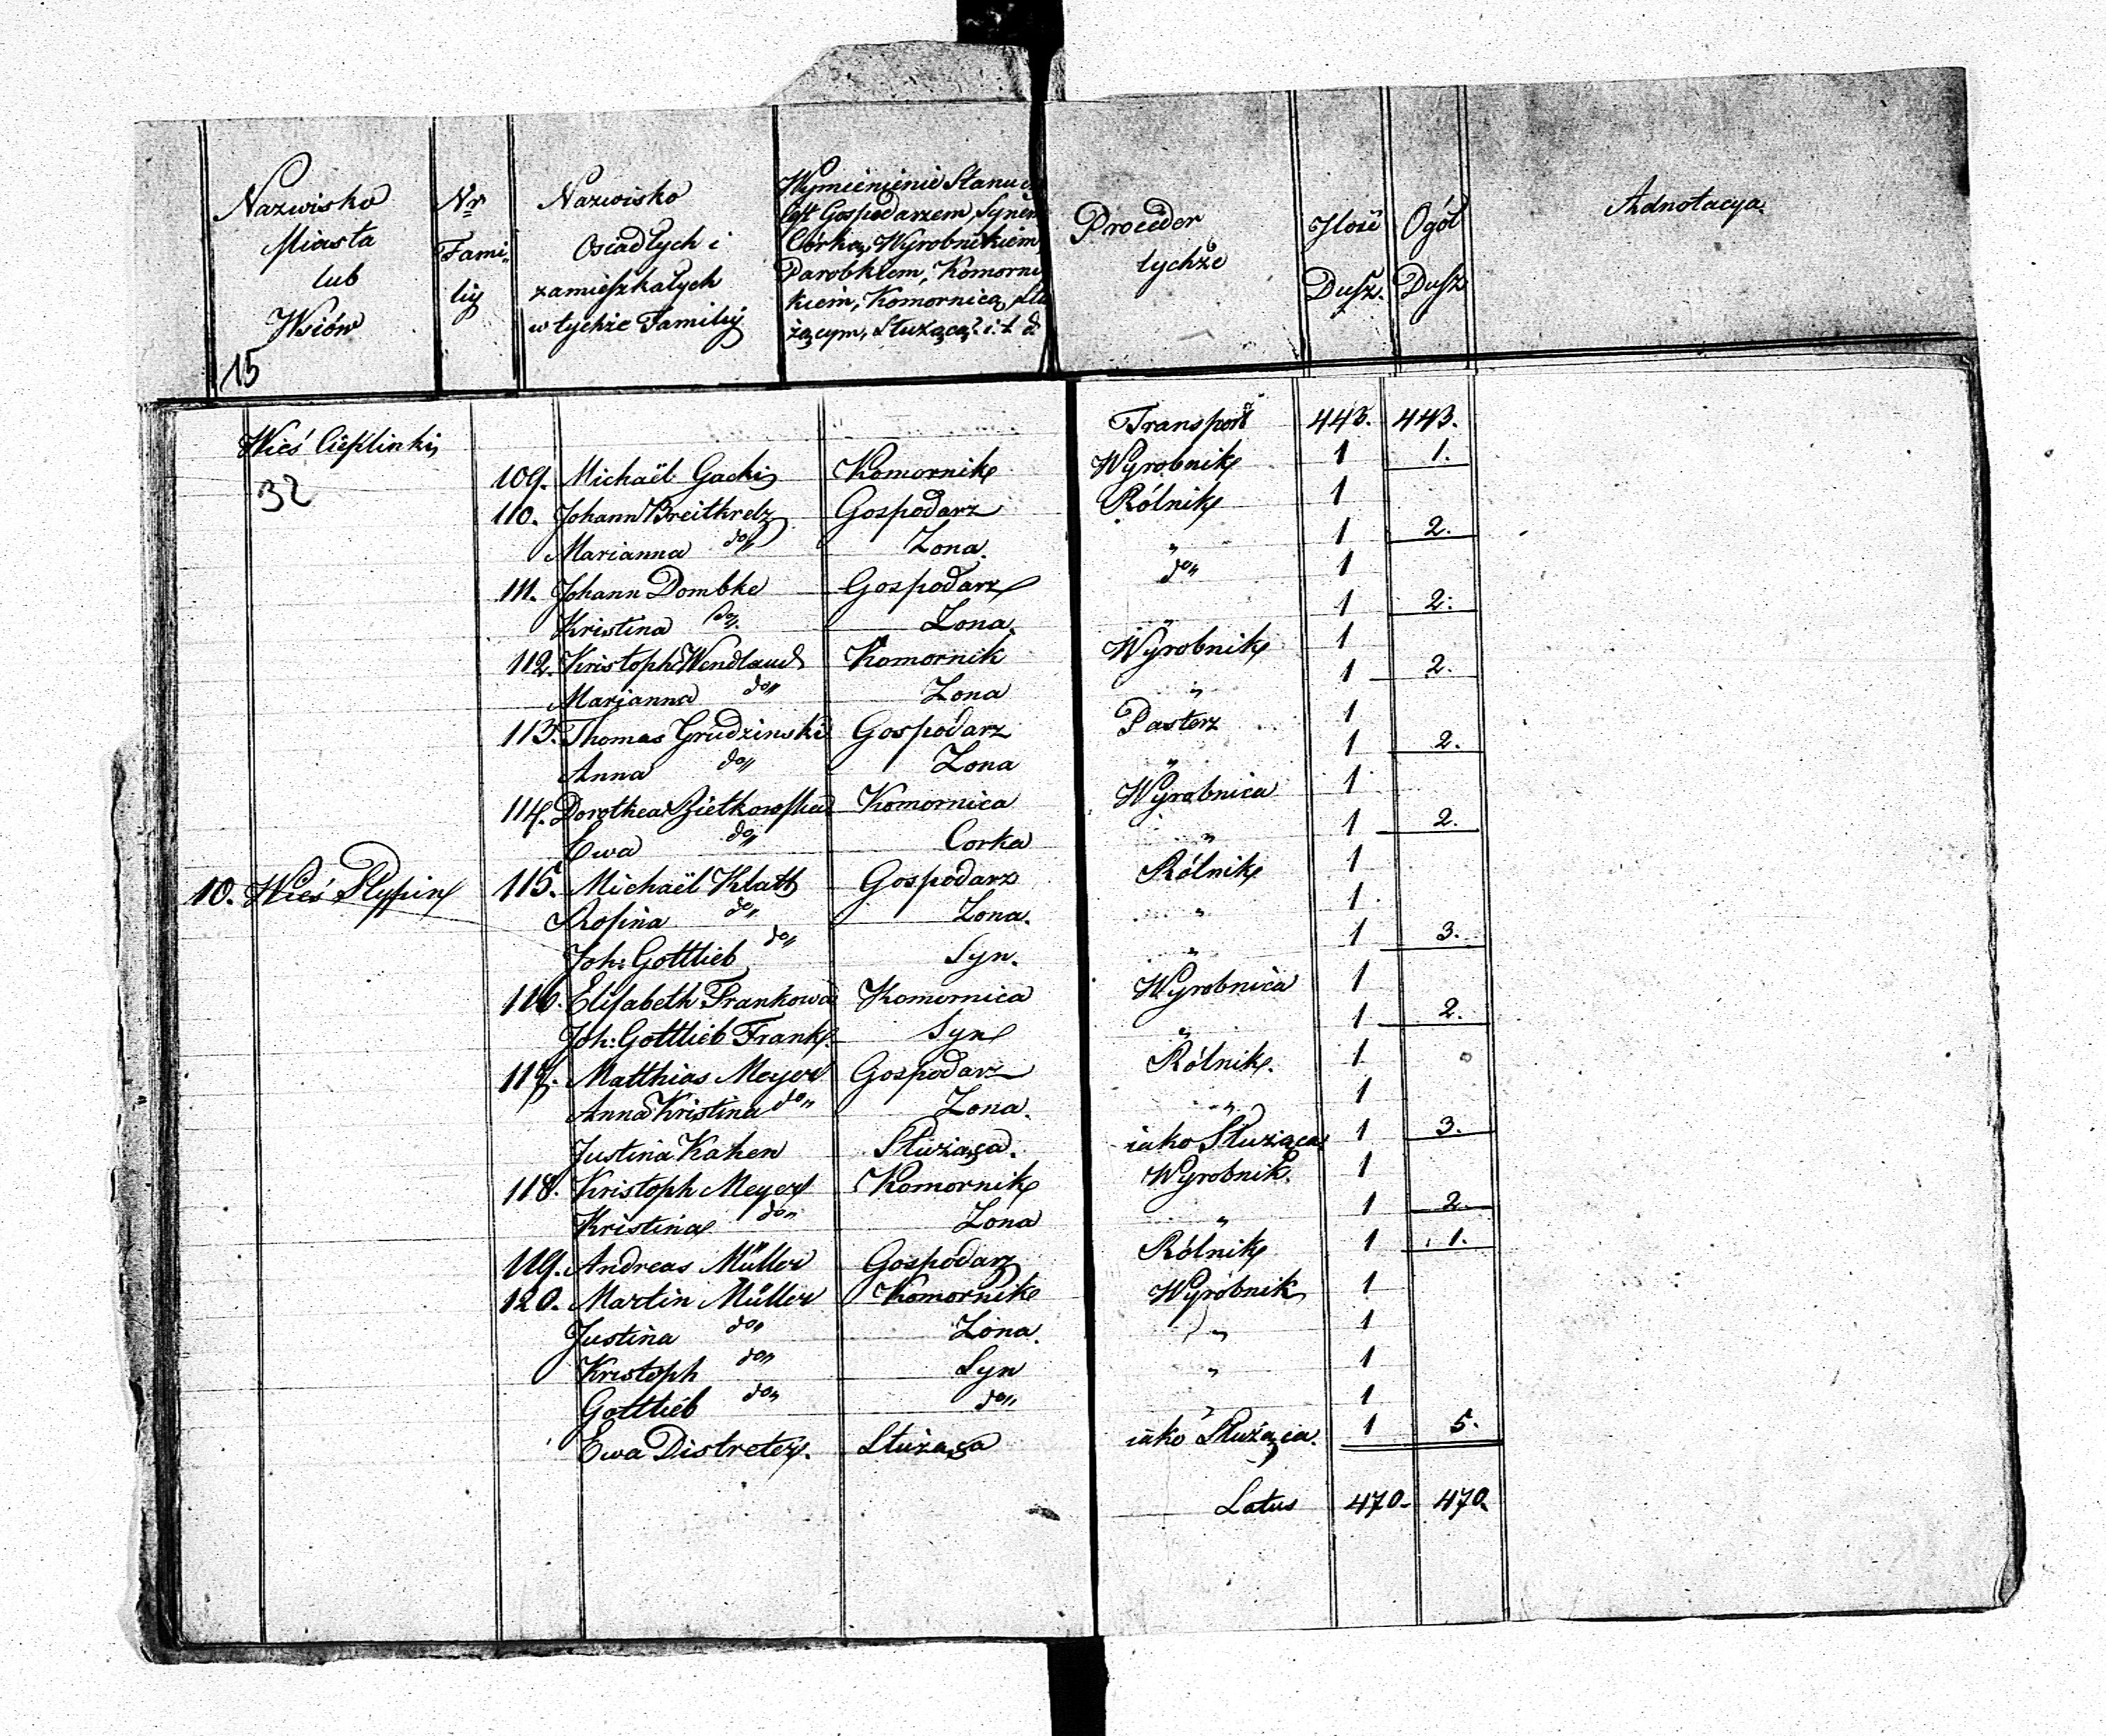 Nazwisko Miasta lub Wsiów
Nr Familiy
Nazwisko Osiadłych i zamieszkałych w tychże Familiy
Wymienienie Stanu
jest Gospodarzem, Synem
Córką, Wyrobnikiem
Parobkiem, Komorni
kiem, Komornicą, Słu
żącym, Służącą i. t. d
Proceder tychże
Ilość Dusz.
Ogół Dusz
Adnotacya.
15
Wieś Cieplinki Transport 443. 443.
32
109. Michaël Gacki Komornik Wyrobnik 1 1.
110. Johann Breitkretz Gospodarz Rólnik 1
Marianna do Zona. " 1 2.
111. Johann Dombke Gospodarz do 1
Kristina do Zona. " 1 2.
112. Kristoph Wendland Komornik Wyrobnik 1
Marianna do Zona " 1 2.
113. Thomas Grudzinski Gospodarz Pasterz 1
Anna do Zona " 1 2.
114. Dorothea Komornica Wyrobnica 1
Ewa do Corka " 1 2.
10. Wieś 115. Michaël Klatt Gospodarz Rólnik 1
Rosina do Zona. " 1
Joh: Gottlieb do Syn. " 1 3.
116. Elisabeth Frankowa Komornica Wyrobnica 1
Joh: Gottlieb Frank. Syn " 1 2.
117. Matthias Meyer Gospodarz Rólnik. 1
Anna Kristina do Zona. " 1
Justina Kahen Służąca. iako Służąca 1 3.
118. Kristoph Meyer Komornik Wyrobnik. 1
Kristina do Zona " 1 2.
119. Andreas Müller Gospodarz Rólnik 1 1.
120. Martin Müller Komornik Wyrobnik 1
Justina do Zona. " 1
Kristoph do Syn " 1
Gottlieb do do " 1
Ewa Distreter. Służąca iako Służąca. 1 5.
Latus 470. 470.